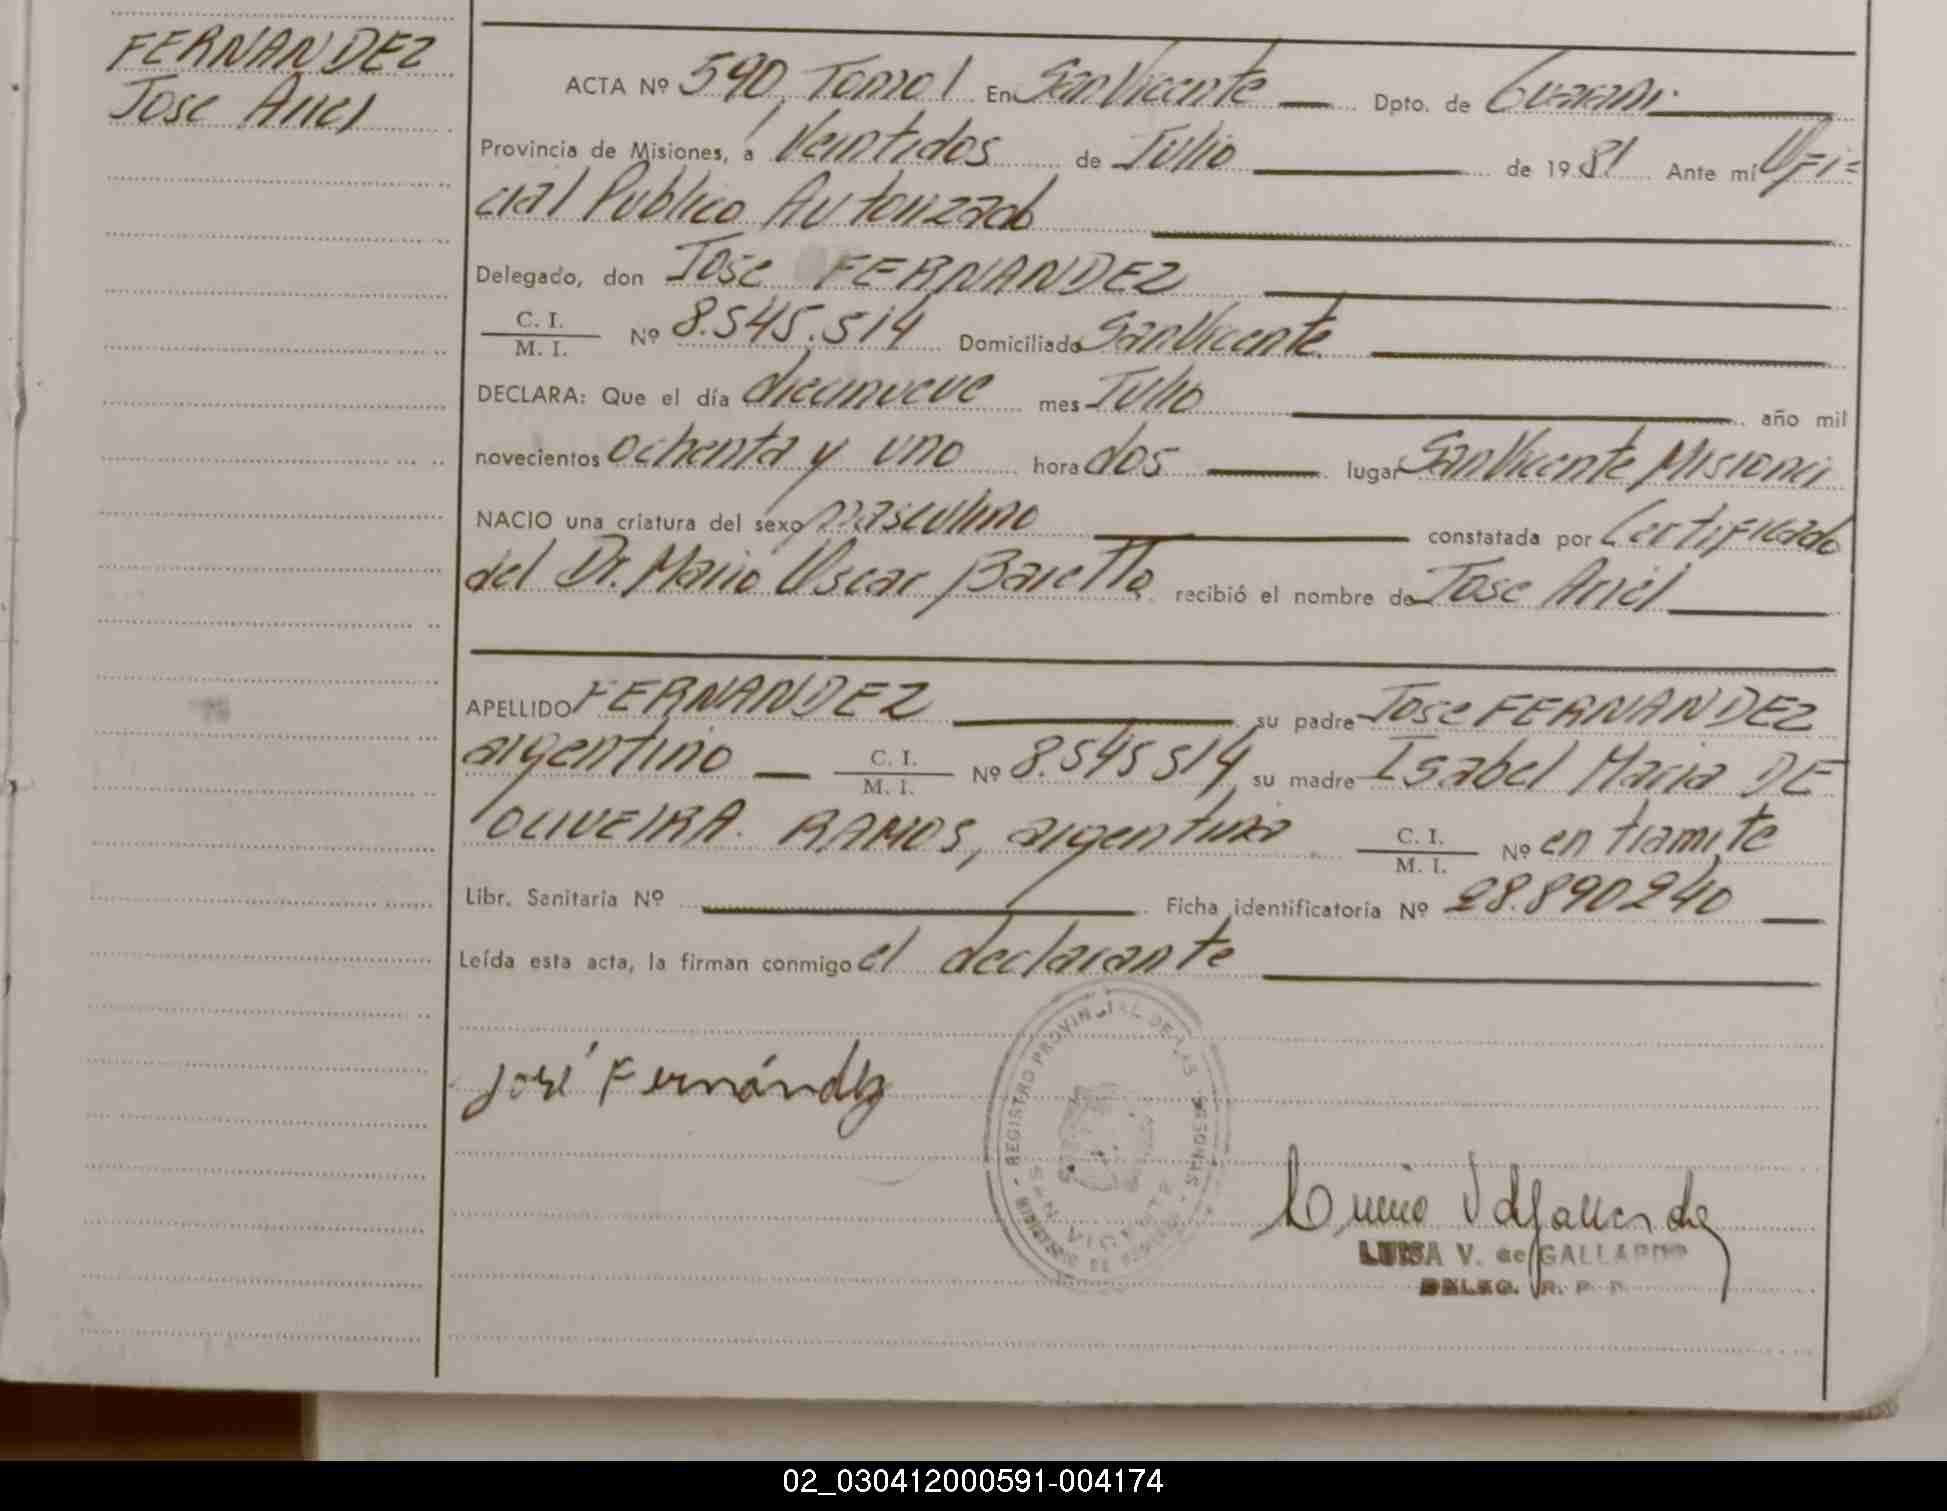 FERNANDEZ
Jose Ariel
ACTA Nº 590, Tomo I En San Vicente Dpto. de Guarani
Provincia de Misiones, a Veintidos de Julio de 1981 Ante mí Ofi=
cial Publico Autorizado
Delegado, don Jose FERNANDEZ
C. I.
M. I. Nº 8.545.514 Domiciliado San Vicente
DECLARA: Que el día diecinueve mes Julio año mil
novecientos ochenta y uno hora dos lugar San Vicente Misiones
NACIO una criatura del sexo masculino constatada por Certificado
del Dr. Mario Oscar Baretto recibió el nombre de Jose Ariel
APELLIDO FERNANDEZ su padre Jose FERNANDEZ
argentino C. I.
M. I. Nº 8.545514 su madre Isabel Maria DE
OLIVEIRA RAMOS, argentina C. I.
M. I. Nº en tramite
Libr. Sanitaria Nº Ficha identificatoria Nº 28.890240
Leída esta acta, la firman conmigo el declarante
REGISTRO PROVINCIAL DE LAS
SAN VICENTE
José Fernández
LUISA V. de GALLARDO
DELEG. R. P. P.
02_030412000591-004174